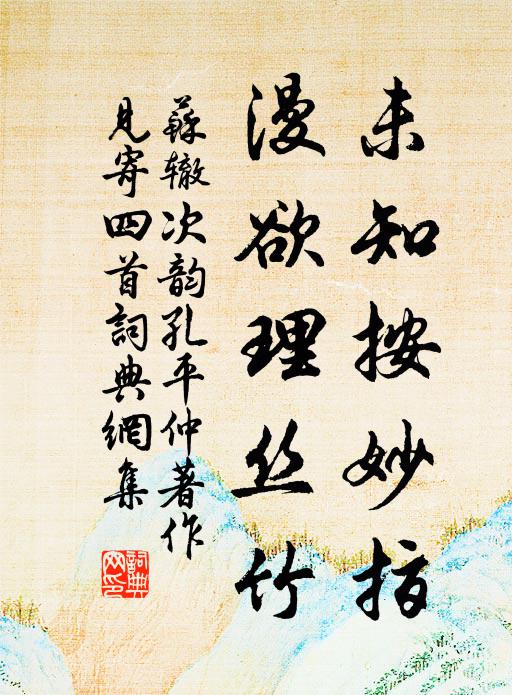 未知按妙指
漫欲理丝竹
蘇辙次韵孔平仲著作
見寄四首詞典網集
詞典
网印